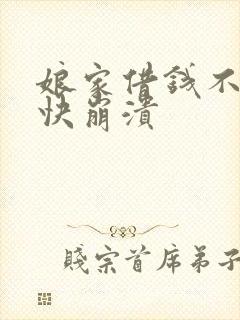 娘家借錢不
快崩潰
賤宗首席弟子